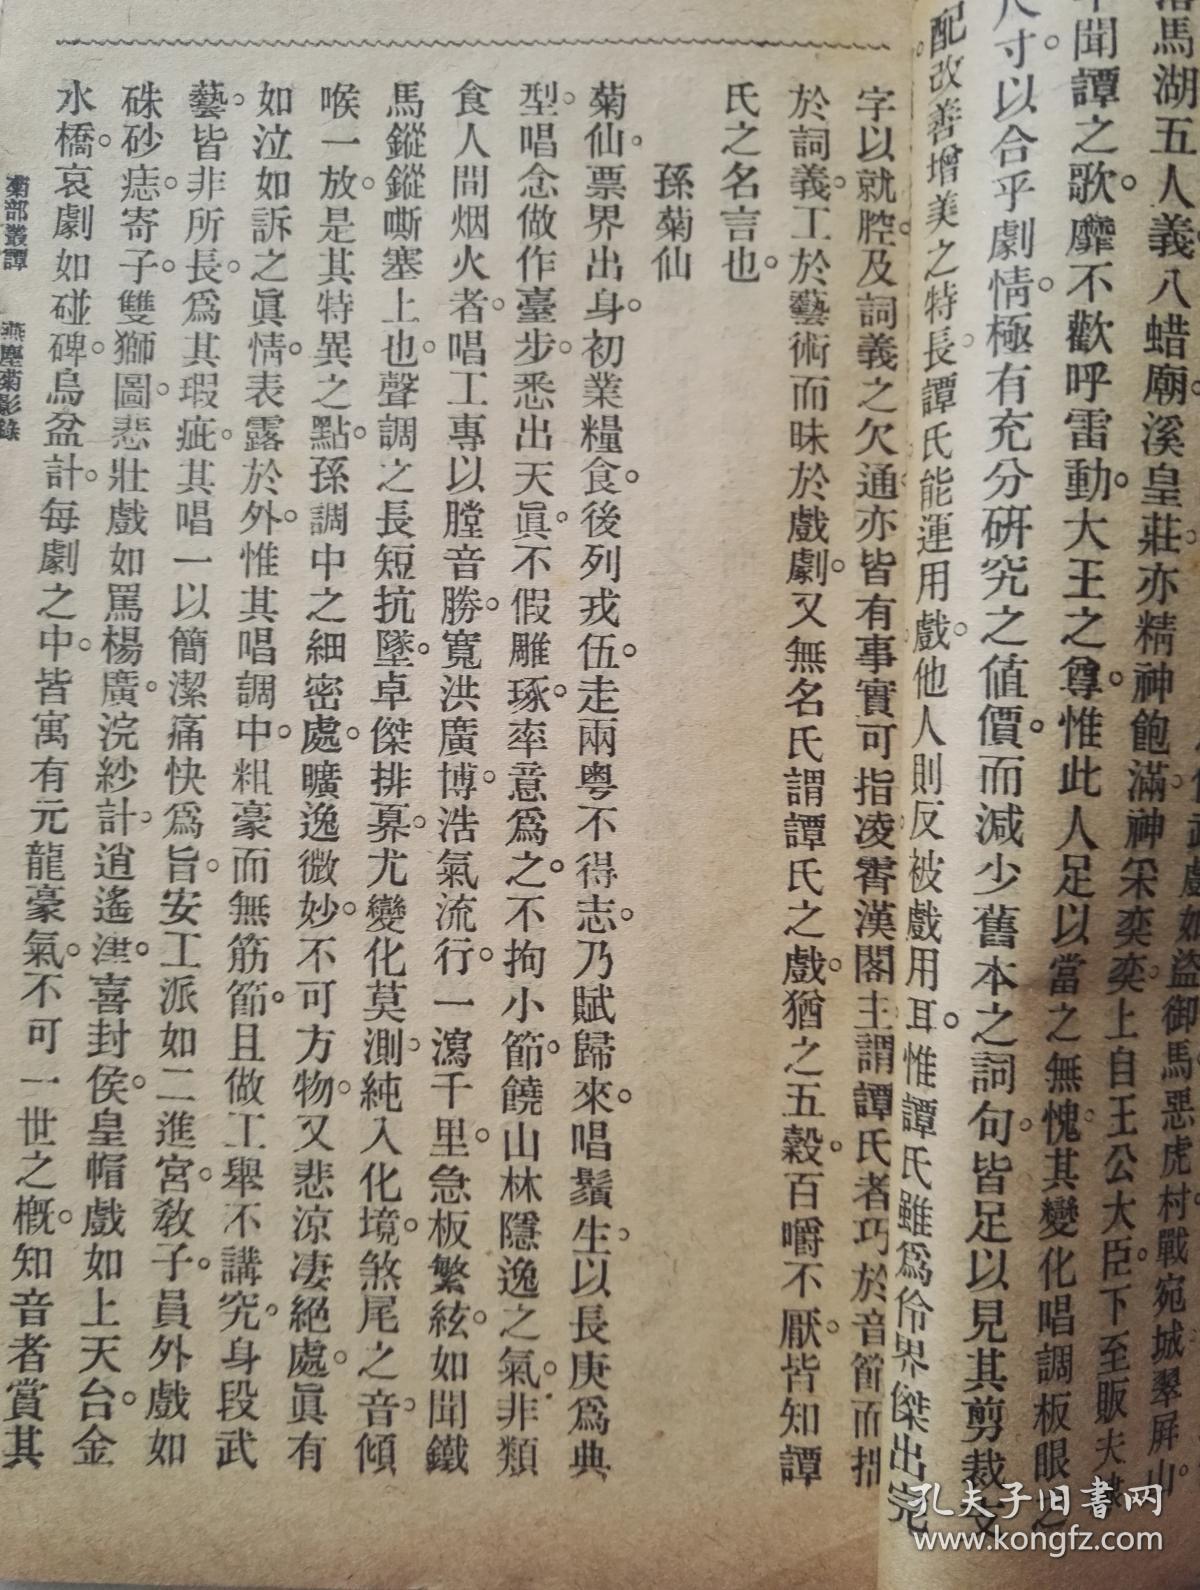 落馬湖五人義八蜡廟溪皇莊亦精神飽滿神采奕奕上自王公大臣下至販夫
聞譚之歌靡不歡呼雷動大王之尊惟此人足以當之無愧其變化唱調板眼之
尺寸以合乎劇情極有充分研究之值價而減少舊本之詞句皆足以見其剪裁
配改善增美之特長譚氏能運用戲他人則反被戲用耳惟譚氏雖爲伶界傑出完
字以就腔及詞義之欠通亦皆有事實可指凌霄漢閣主謂譚氏者巧於音節而拙
於詞義工於藝術而昧於戲劇又無名氏謂譚氏之戲猶之五穀百嚼不厭皆知譚
氏之名言也
孫菊仙
菊仙票界出身初業糧食後列戎伍走兩粵不得志乃賦歸來唱鬚生以長庚爲典
型唱念做作臺步悉出天眞不假雕琢率意爲之不拘小節饒山林隱逸之氣非類
食人間烟火者唱工專以膛音勝寬洪廣博浩氣流行一瀉千里急板繁絃如聞鐵
馬鏦鏦嘶塞上也聲調之長短抗墜卓傑排奡尤變化莫測純入化境煞尾之音傾
喉一放是其特異之點孫調中之細密處曠逸微妙不可方物又悲涼淒絕處眞有
如泣如訴之眞情表露於外惟其唱調中粗豪而無筋節且做工舉不講究身段武
藝皆非所長爲其瑕疵其唱一以簡潔痛快爲旨安工派如二進宮敎子員外戲如
硃砂痣寄子雙獅圖悲壯戲如罵楊廣浣紗計逍遙津喜封侯皇帽戲如上天台金
水橋哀劇如碰碑烏盆計每劇之中皆寓有元龍豪氣不可一世之槪知音者賞其
菊部叢譚 燕塵菊影錄
孔夫子旧书网
www.kongfz.com